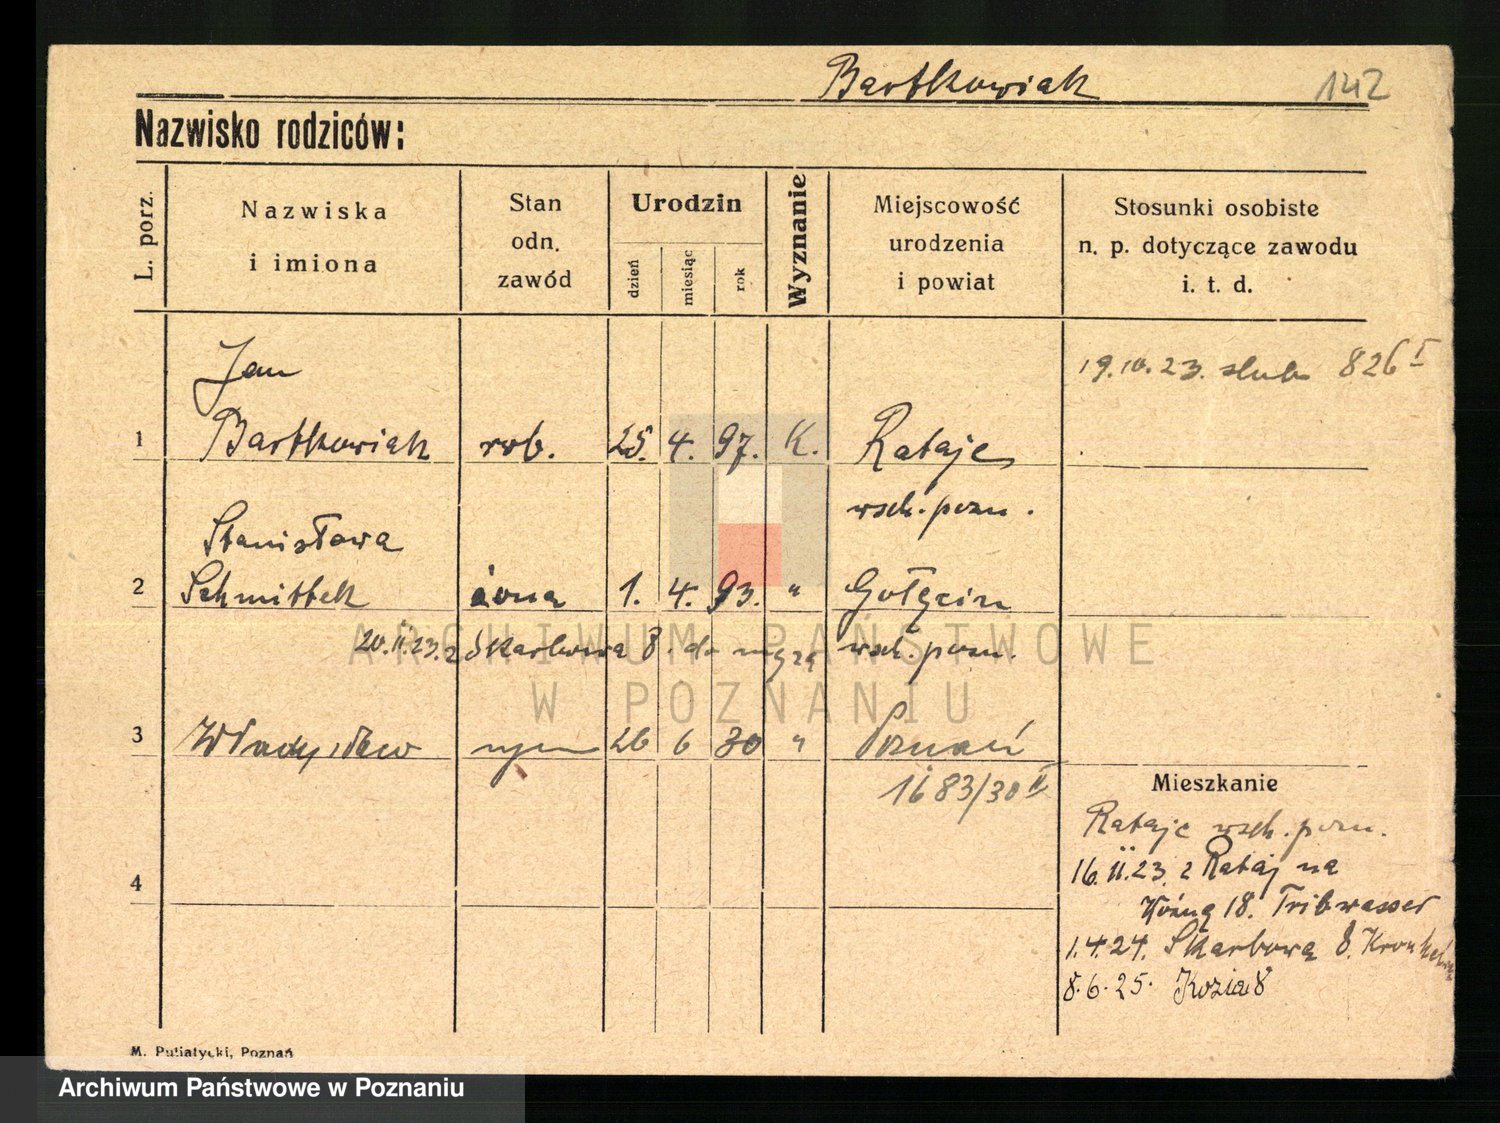 Bartkowiak 142
Nazwisko rodziców:
L. porz.
Nazwiska
i imiona
Stan
odn.
zawód
Urodzin
dzień
miesiąc
rok
Wyznanie
Miejscowość
urodzenia
i powiat
Stosunki osobiste
n. p. dotyczące zawodu
i. t. d.
Jan
19.10.23. slub 826 I
1 Bartkowiak rob. 25. 4. 97. K. Rataje
wsch. pozn.
Stanisława
2 Schmittek żona 1. 4. 93. " Gołęcin
20.II.23. z Skarbowa 8. do męża wsch. pozn.
ARCHIWUM PAŃSTWOWE
W POZNANIU
3 Władysław syn 26 6 30 " Poznań
1683/30 II
Mieszkanie
Rataje wsch. pozn.
16.II.23. z Rataj na
4
Kózną 18. Tribwasser
1.4.24. Skarbowa 8.
8.6.25. Kozia 8
M. Putiatycki, Poznań
Archiwum Państwowe w Poznaniu